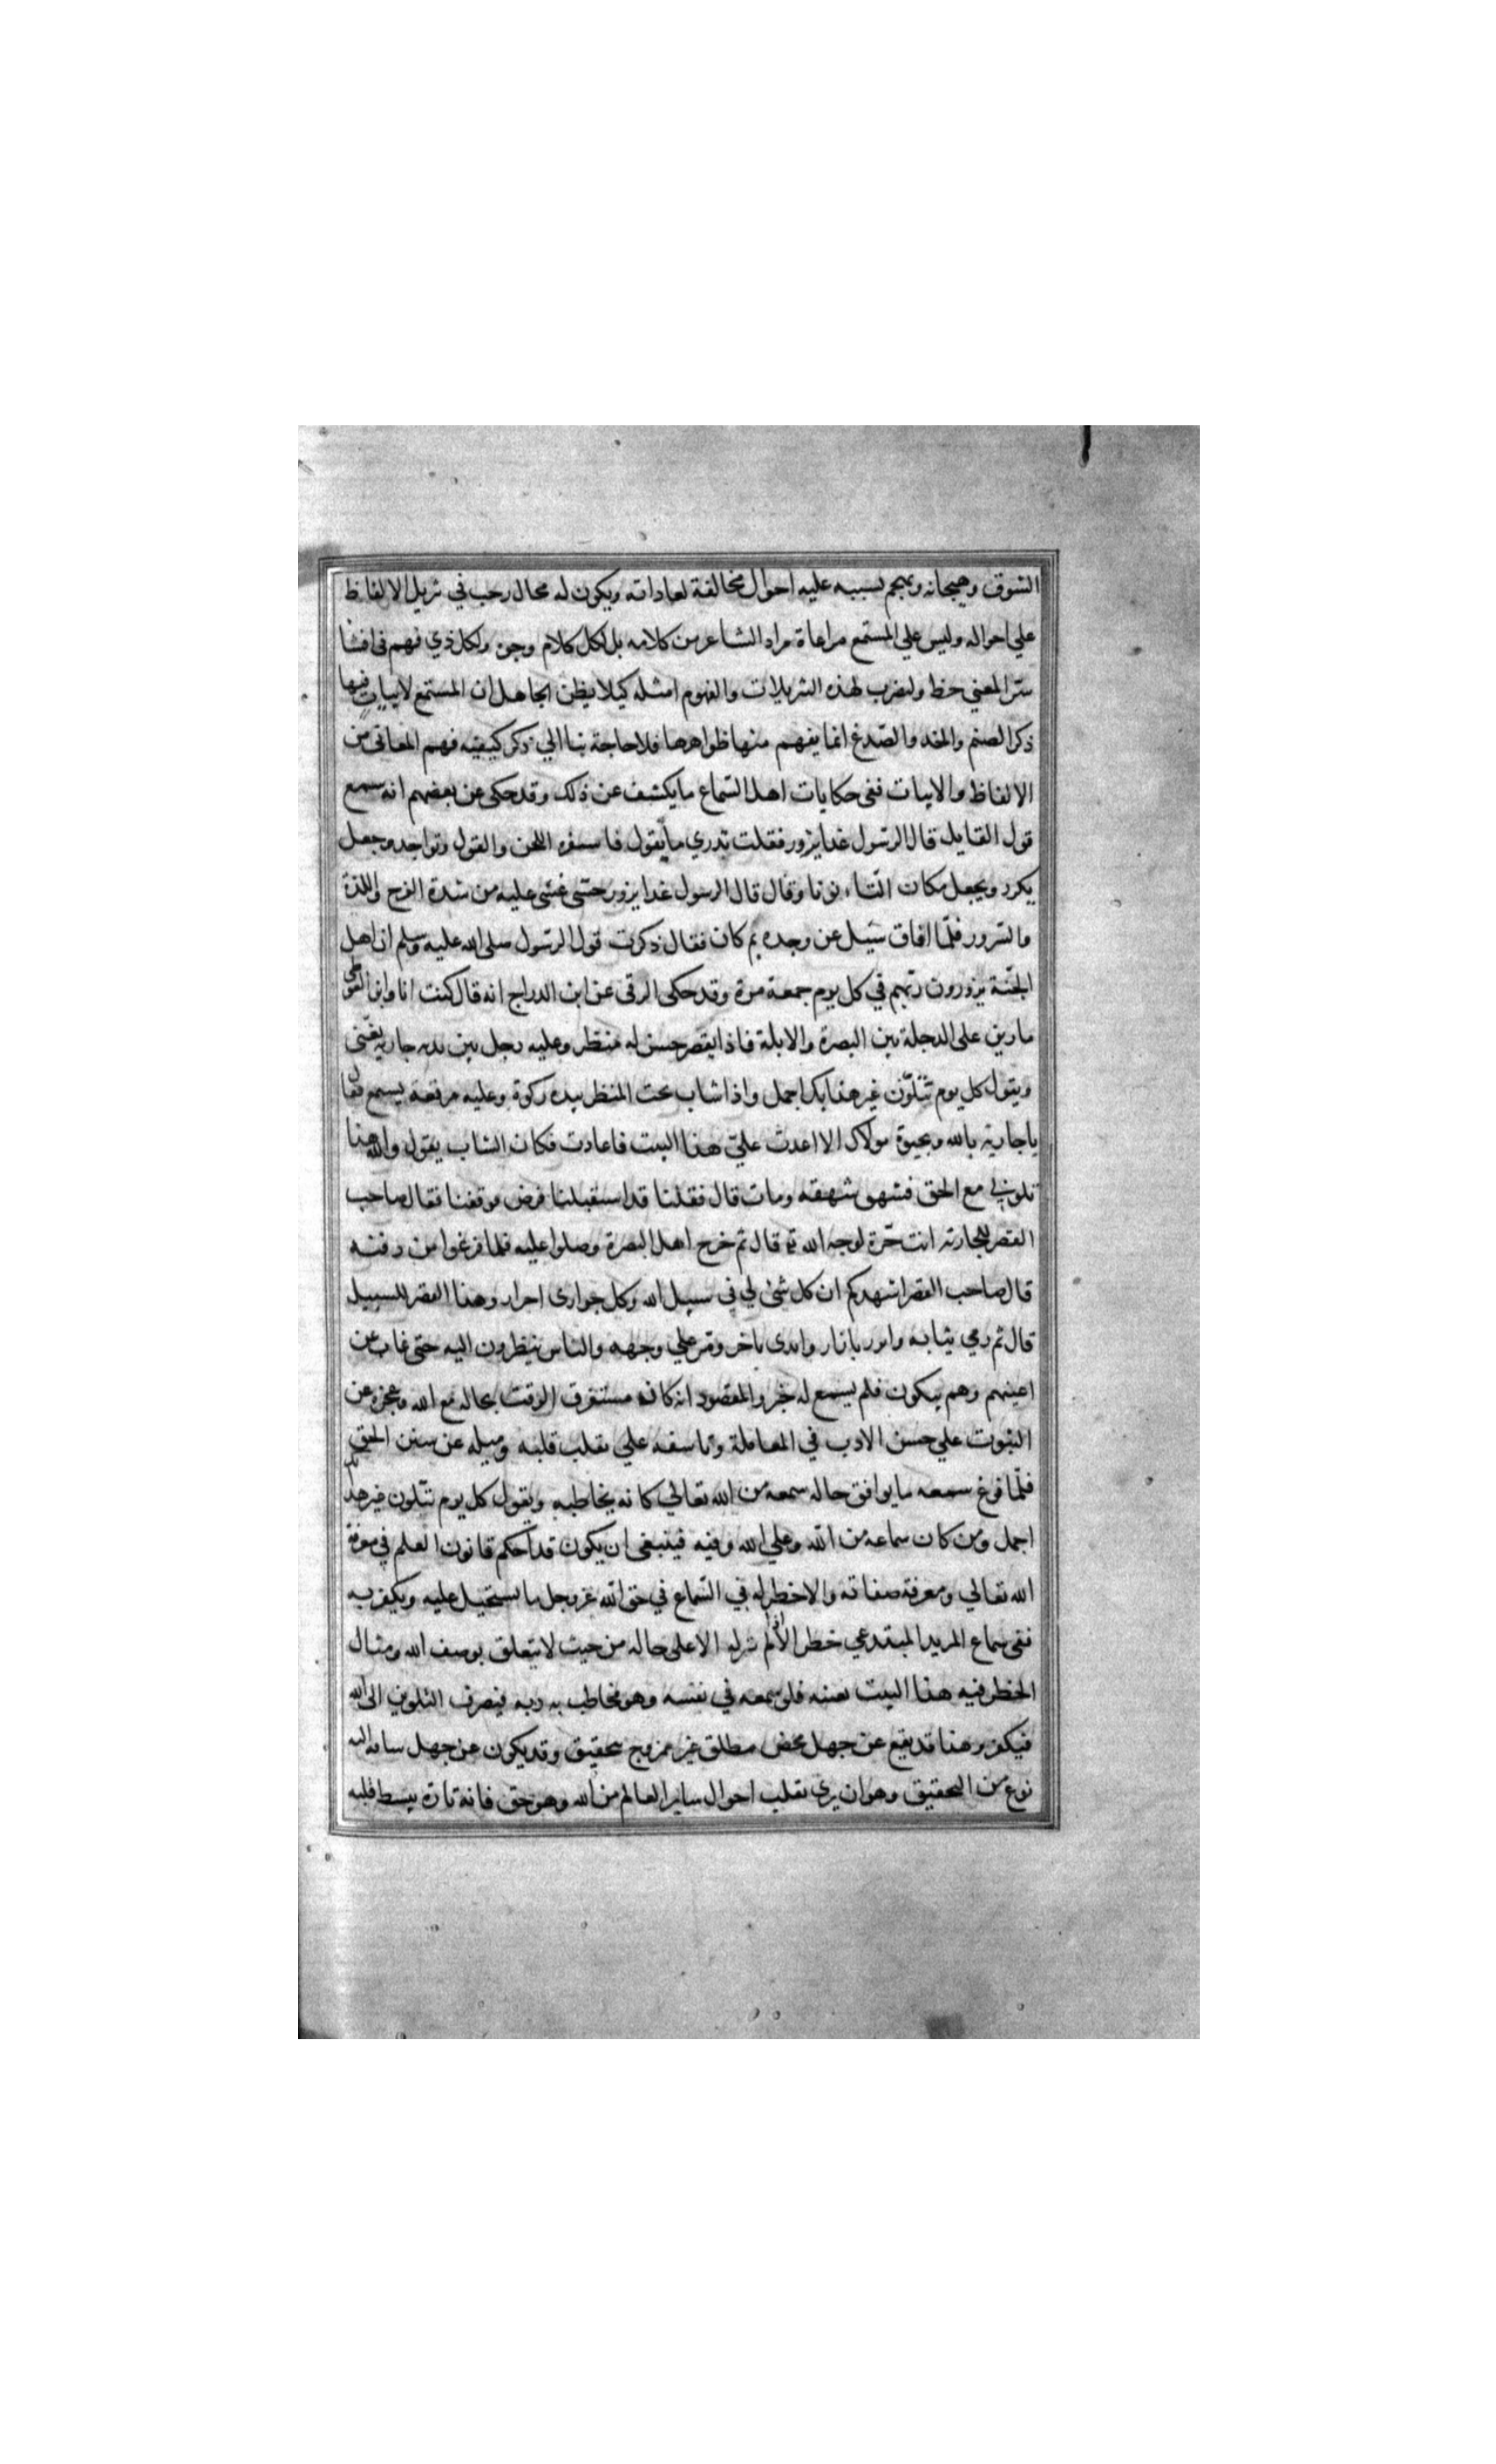 الشوق وهيجانه ويهجم بسببه عليه احوال مخالفة لعاداته ويكون له مجال رحب في تنزيل الالفاظ
علي احواله وليس علي المستمع مراعاة مراد الشاعر من كلامه بل لكل كلام وجوه ولكل ذي فهم في اقتنا
المعني حظ ولنضرب لهذه التنزيلات والفهوم امثله كيلا يظن الجاهل ان المستمع لابيات فيها
ذكر الصنم والخد والصدغ انما يفهم منها ظواهرها فلا حاجة بنا الي ذكر كيفيه فهم المعاني من
الالفاظ والابيات ففي حكايات اهل السماع ما يكشف عن ذلك وقد حكى عن بعضهم انه سمع
قول القايل قال الرسول غدا يزور فقلت تدري ما يقول فاستفزه اللحن والقول وتواجد وجعل
يكرر ويجعل مكان التاء نونا وقال قال الرسول غدا يزور حتى غشى عليه من شدة الفرح واللذة
والسرور فلما افاق سئيل عن وجده بم كان فقال ذكرت قول الرسول صلى الله عليه وسلم ان اهل
الجنة يزورون ربهم في كل يوم جمعة مرة وقد حكى الرقى عن ابن الدراج انه قال كنت انا وابن الفوطى
مارين على الدجلة بين البصرة والابلة فاذا بقصر حسن له منظر وعليه رجل بين يديه جاريه يغنى
ويقول كل يوم تتلون غير هذا بك اجمل واذا شاب تحت المنظر بيده ركوة وعليه مرقعة يسمع فقال
يا جارية بالله وبحيوة مولاك الا اعدت علي هذا البيت فاعادت فكان الشاب يقول والله هذا
تلوني مع الحق فشهق شهقه ومات قال فقلنا قد استقبلنا فرض فوقفنا فقال صاحب
القصر للجاريه انت حرة لوجه الله تع قال ثم خرج اهل البصرة وصلوا عليه فلما فرغوا من دفنه
قال صاحب القصر اشهدكم ان كل شئ لي في سبيل الله وكل جوارى احرار وهذا القصر للسبيل
قال ثم رمي ثيابه واتزر بازار وارتدى باخر ومر علي وجهه والناس ينظرون اليه حتى غاب عن
اعينهم وهم يبكون فلم يسمع له خبر والمقصود انه كان مستغرق الوقت بحاله مع الله وعجزه عن
الثبوت علي حسن الادب في المعاملة وتاسفه علي تقلب قلبه وميله عن سنن الحق
فلما قرع سمعه ما يوافق حاله سمعه من الله تعالي كانه يخاطبه ويقول كل يوم تتلون غير هذا بك
اجمل ومن كان سماعه من الله وعلي الله وفيه فينبغي ان يكون قد احكم قانون العلم في معرفة
الله تعالي ومعرفة صفاته والا خطر له في السماع في حق الله عز وجل ما يستحيل عليه ويكفر به
ففي سماع المريد المبتدي خطر الا اذا لم ينزله الا على حاله من حيث لا يتعلق بوصف الله ومثال
الخطر فيه هذا البيت بعينه فلو سمعه في نفسه وهو مخاطب به ربه فيصرف التلوين الى الله
فيكفر وهذا قد يقع عن جهل محض مطلق غير ممزوج بتحقيق وقد يكون عن جهل ساقه اليه
نوع من التحقيق وهو ان يري تقلب احوال ساير العالم من الله وهو حق فانه تارة يبسط قلبه